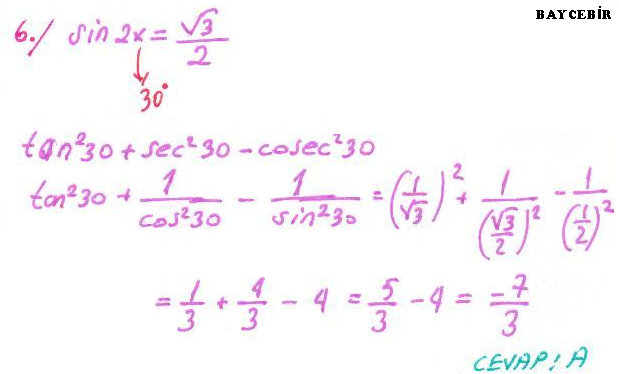 BAYCEBİR
6./ sin 2x = √3/2
30°
tan²30 + sec²30 - cosec²30
tan²30 + 1/cos²30 - 1/sin²30 = (1/√3)² + 1/(√3/2)² - 1/(1/2)²
= 1/3 + 4/3 - 4 = 5/3 - 4 = -7/3
CEVAP: A